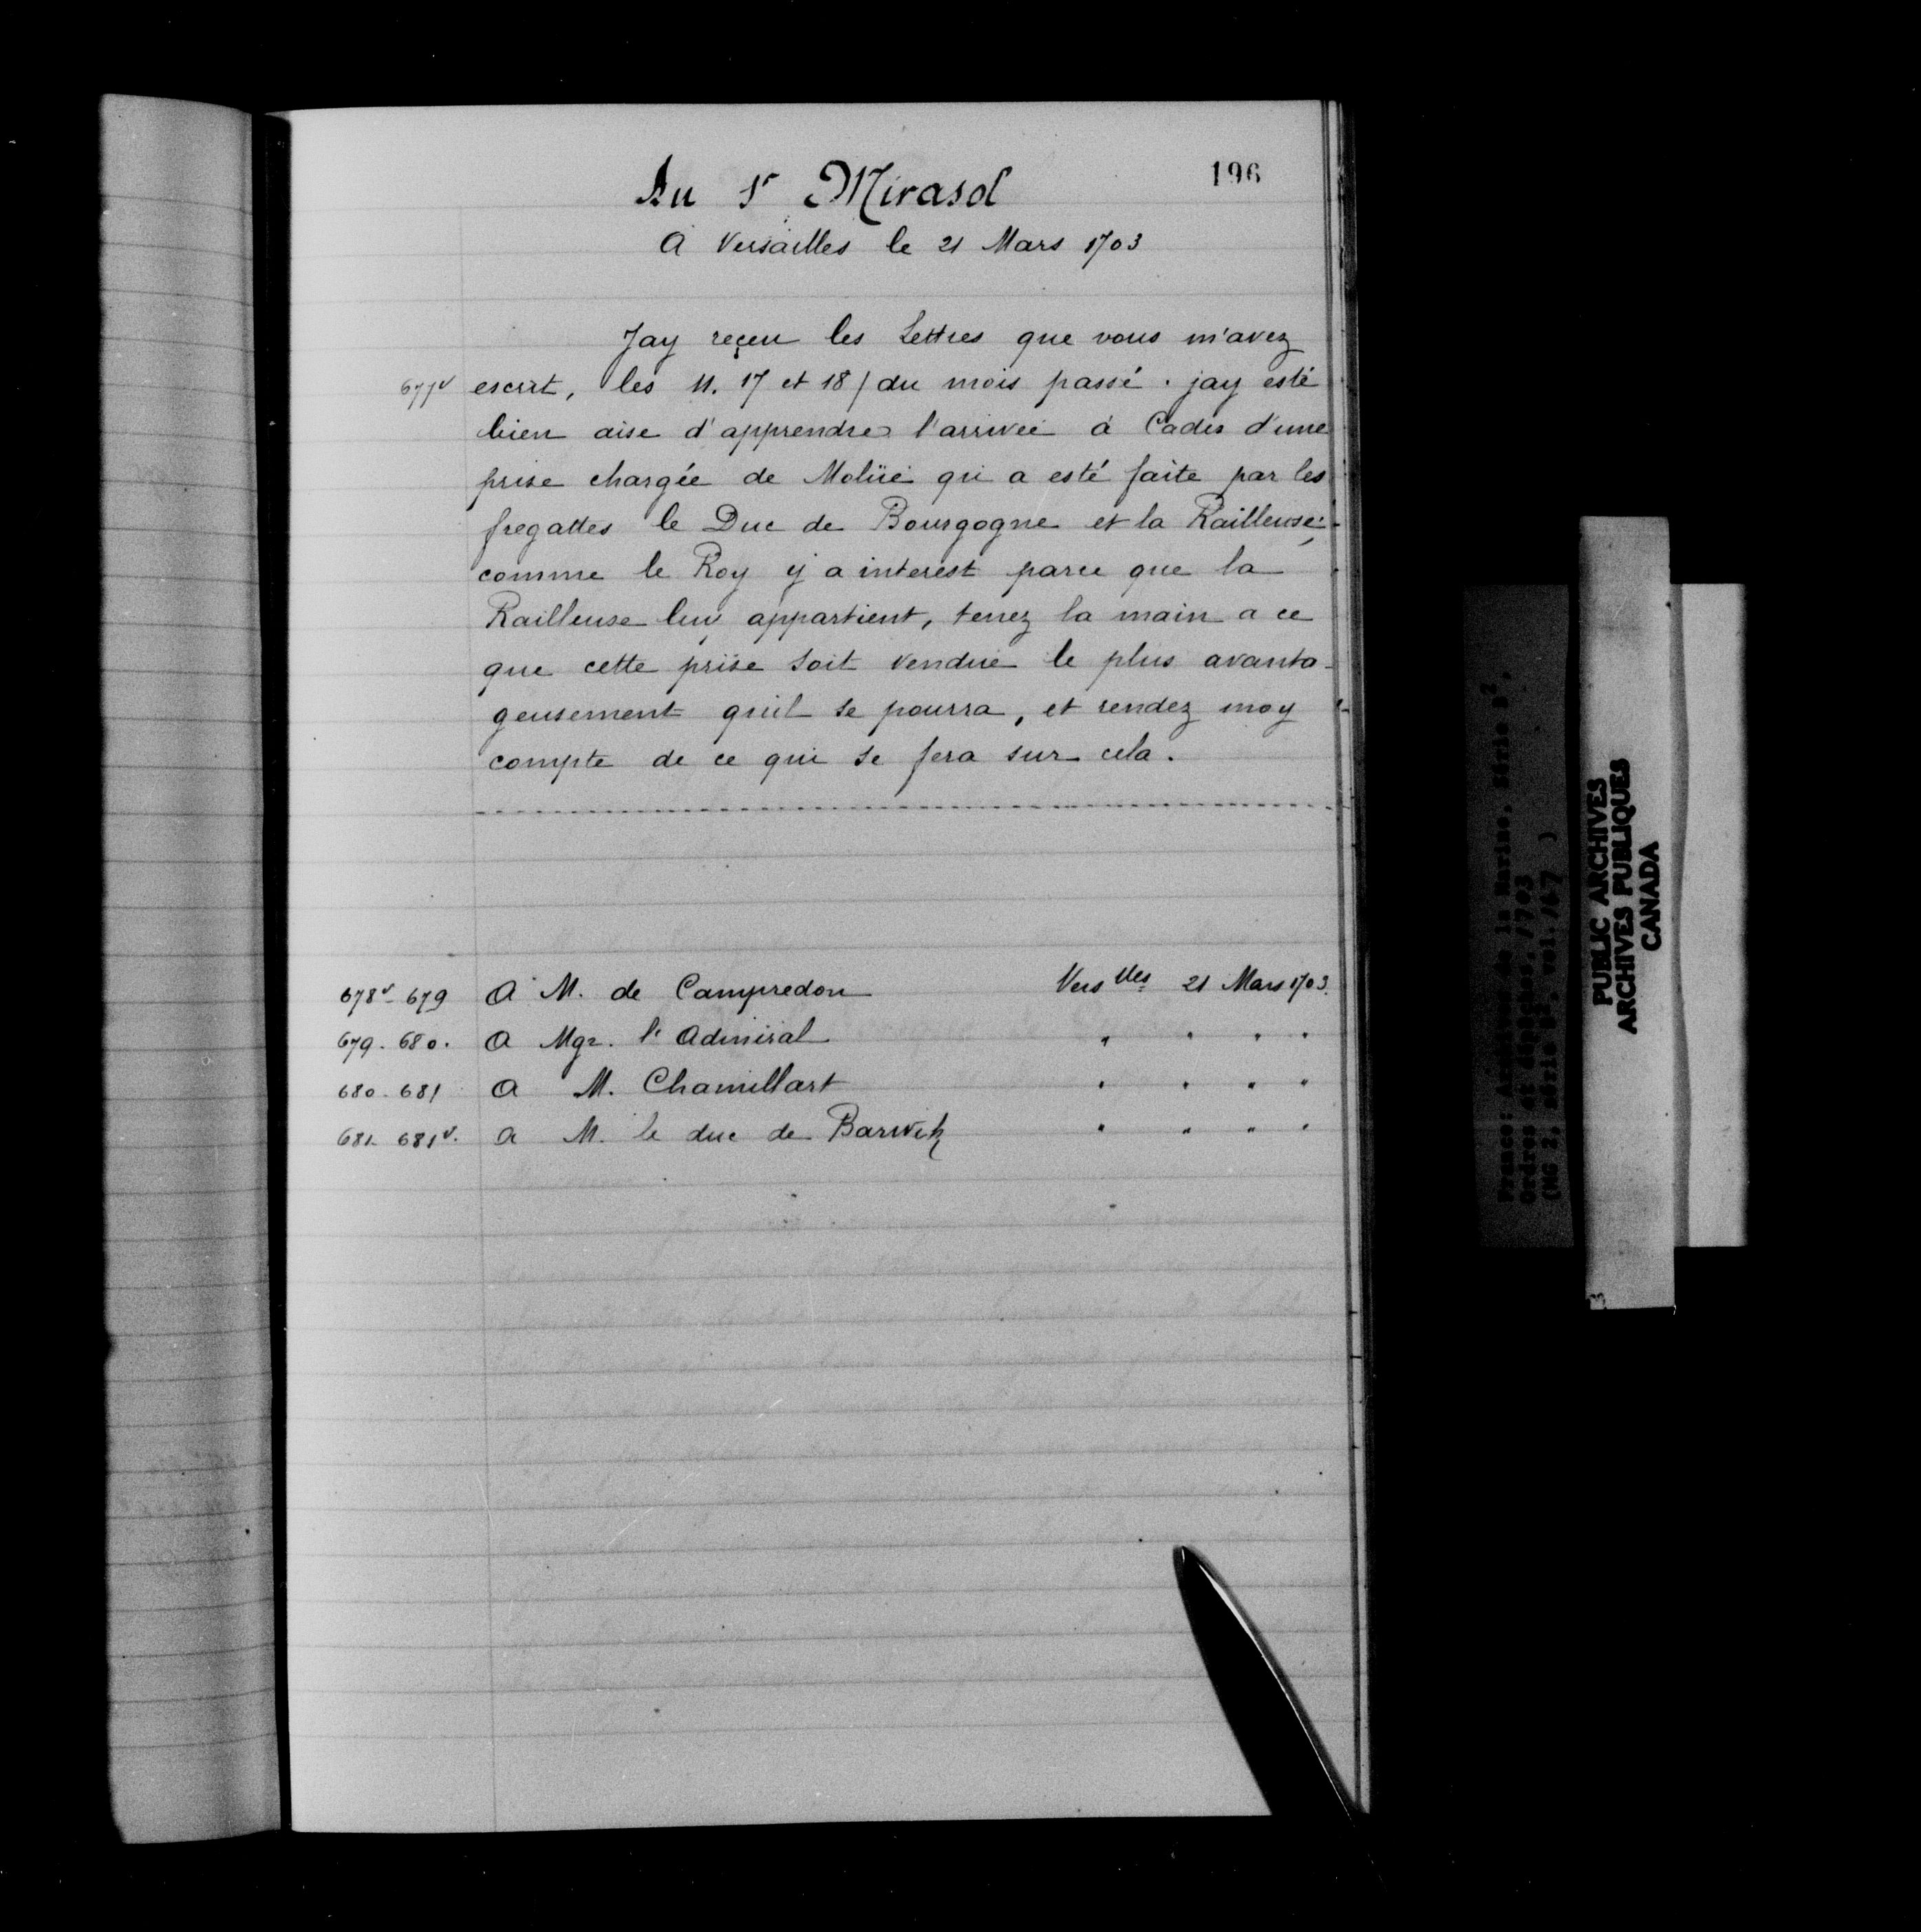 196
Au Sr Mirasol
A Versailles le 21 Mars 1703
Jay reçeu les Lettres que vous m'avez
677v escrit, les 11. 17 et 18/ du mois passé. jay esté
bien aise d'apprendre l'arrivée à Cadis d'une
prise chargée de Molüe qui a esté faite par les
fregattes le Duc de Bourgogne et la Railleuse;
comme le Roy y a interest parce que la
Railleuse luy appartient, tenez la main a ce
que cette prise soit vendue le plus avanta-
geusement qu'il se pourra, et rendez moy
compte de ce qui se fera sur cela.
678v-679 A M. de Campredon Verslles 21 Mars 1703.
679. 680. A Mgr. l'Admiral " " " "
680. 681 A M. Chamillart " " " "
681. 681v. A M. le duc de Barwik " " " "
France: Archives de la Marine, Série B2,
Ordres et dépêches, 1703
(MG 2, série B2, vol. 167 )
PUBLIC ARCHIVES
ARCHIVES PUBLIQUES
CANADA